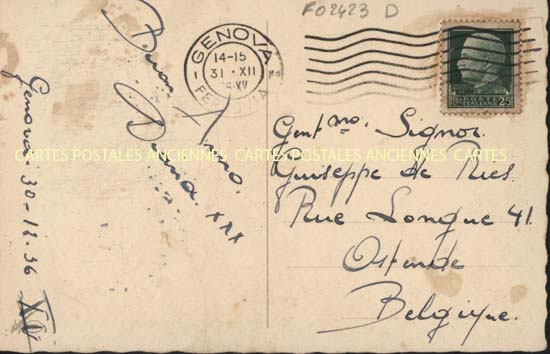 F02423 D
GENOVA
14-15
31·XII
FERROVIA
POSTE ITALIANE
25
Buon Anno.
xxx
Genova 30-12-36 XV
Gent.mo Signor
Giuseppe de Ries.
Rue Longue 41.
Ostende
Belgique.
CARTES POSTALES ANCIENNES CARTES POSTALES ANCIENNES CARTES POSTALES ANCIENNES